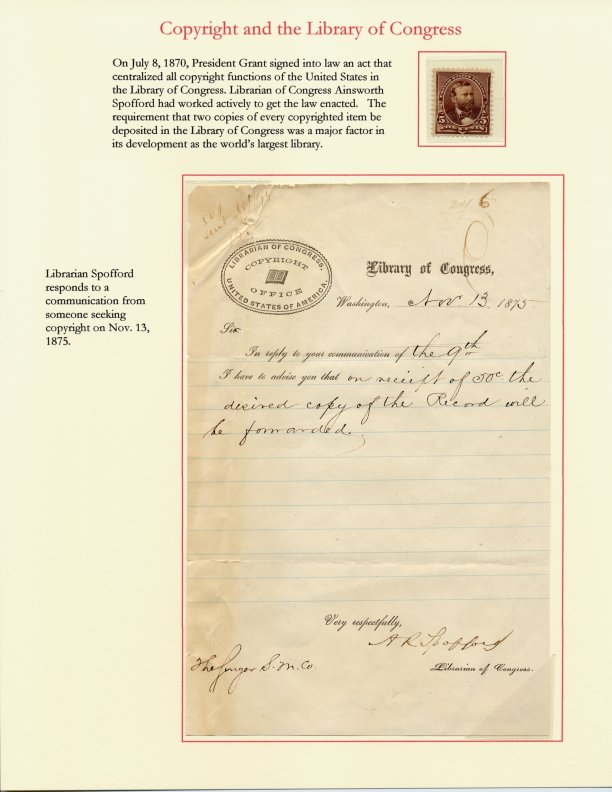 Copyright and the Library of Congress
On July 8, 1870, President Grant signed into law an act that
centralized all copyright functions of the United States in
the Library of Congress. Librarian of Congress Ainsworth
Spofford had worked actively to get the law enacted. The
requirement that two copies of every copyrighted item be
deposited in the Library of Congress was a major factor in
its development as the world's largest library.
5 5
Librarian Spofford
responds to a
communication from
someone seeking
copyright on Nov. 13,
1875.
6
LIBRARIAN OF CONGRESS,
COPYRIGHT
OFFICE
UNITED STATES OF AMERICA.
Library of Congress,
Washington, Nov 13, 1875
Sir:
In reply to your communication of the 9th
I have to advise you that on receipt of 50c the
desired copy of the Record will
be forwarded.
Very respectfully,
A R Spofford
Librarian of Congress.
The Singer S. M. Co